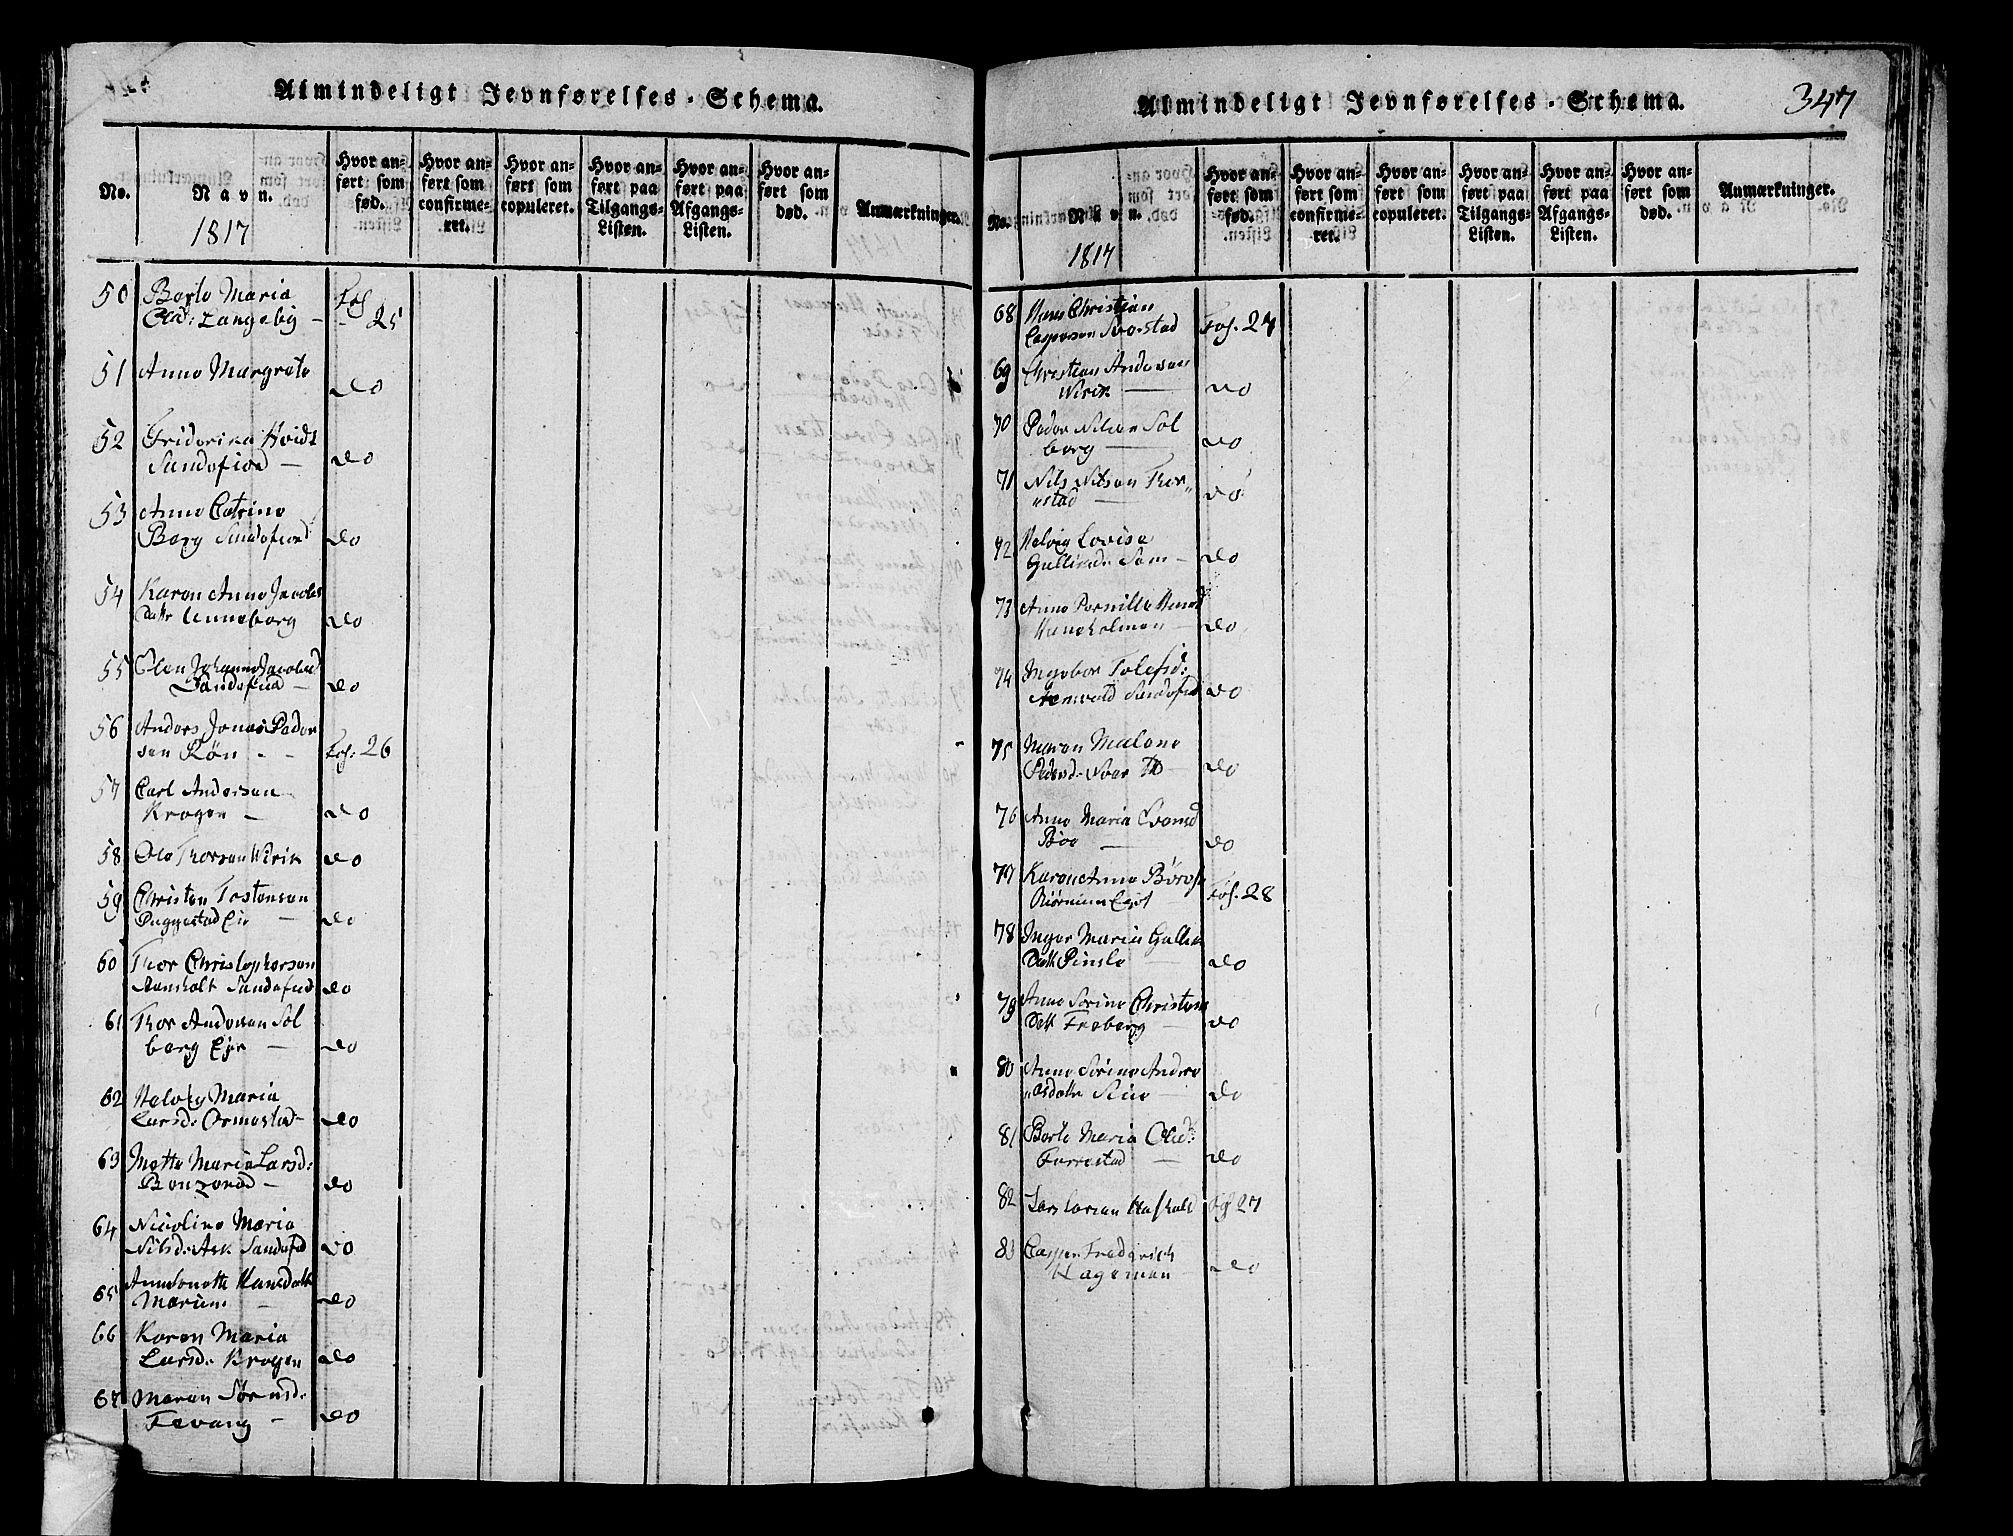 Almindeligt Jevnførelses-Schema.
No.
Navn.
1817
Hvor anført som fød.
Hvor anført som confirmeret.
Hvor anført som copuleret.
Hvor anført paa Tilgangs-Listen.
Hvor anført paa Afgangs-Listen.
Hvor anført som død.
Anmærkninger.
50 Berte Maria Fol
Olsd: Langeby - - 25
51 Anne Margrete
do
52 Friderica Hvidt
Sandefiord - do
53 Anne Catrine
Berg Sandefiord do
54 Karen Anne Jacobs
Datter Unneberg do
55 Elen Johanne Jacobsd
Sandefiord - do
56 Anders Jonas Peder
sen Røn - - Fol: 26
57 Carl Andersen
Krogen - do
58 Ole Thorsen Virik do
59 Christen Tostensen
Puggestad Eie - do
60 Thor Christophersen
Ramholt Sandefird do
61 Thor Andersen Sol
berg Eje - do
62 Helvig Maria
Larsd: Ormestad - do
63 Mette Maria Larsd:
Benzerød - do
64 Nicoline Maria
Nilsd: Ask Sandefd do
65 Hansdatt
Marum - do
66 Karen Maria
Larsd: Krogen do
67 Maren Sørensd:
Fevang - do
Almindeligt Jevnførelses-Schema.
347
No.
Navn.
1817
Hvor anført som fød.
Hvor anført som confirmeret.
Hvor anført som copuleret.
Hvor anført paa Tilgangs-Listen.
Hvor anført paa Afgangs-Listen.
Hvor anført som død.
Anmærkninger.
68 Hans Christian
Casperson Fol. 27
69 Christian Andersen
Virik - do
70 Peder Nilsen Sol
berg - do
71 Nils Nilsen Thor„
estad - do
72 Helvig Lovise
Gulliksd: - do
73 Anne Pernille Hansd
Huneholmen - do
74 Ingebor Tolefsd:
Sandefird do
75 Maren Malene
Pedersd: do
76 Anne Maria Evensd
Bøe - do
77 Karen Anne
Fol. 28
78 Inger Maria Gullik
Datt Pinsle - do
79 Anne Sørine Christens
Datt Freberg - do
80 Anne Sørine Andre
„asdatter - do
81 Berte Maria Olsd:
Furrestad - do
82 Lars Larsen Fol 27
83 Casper Frederich
Hageman do